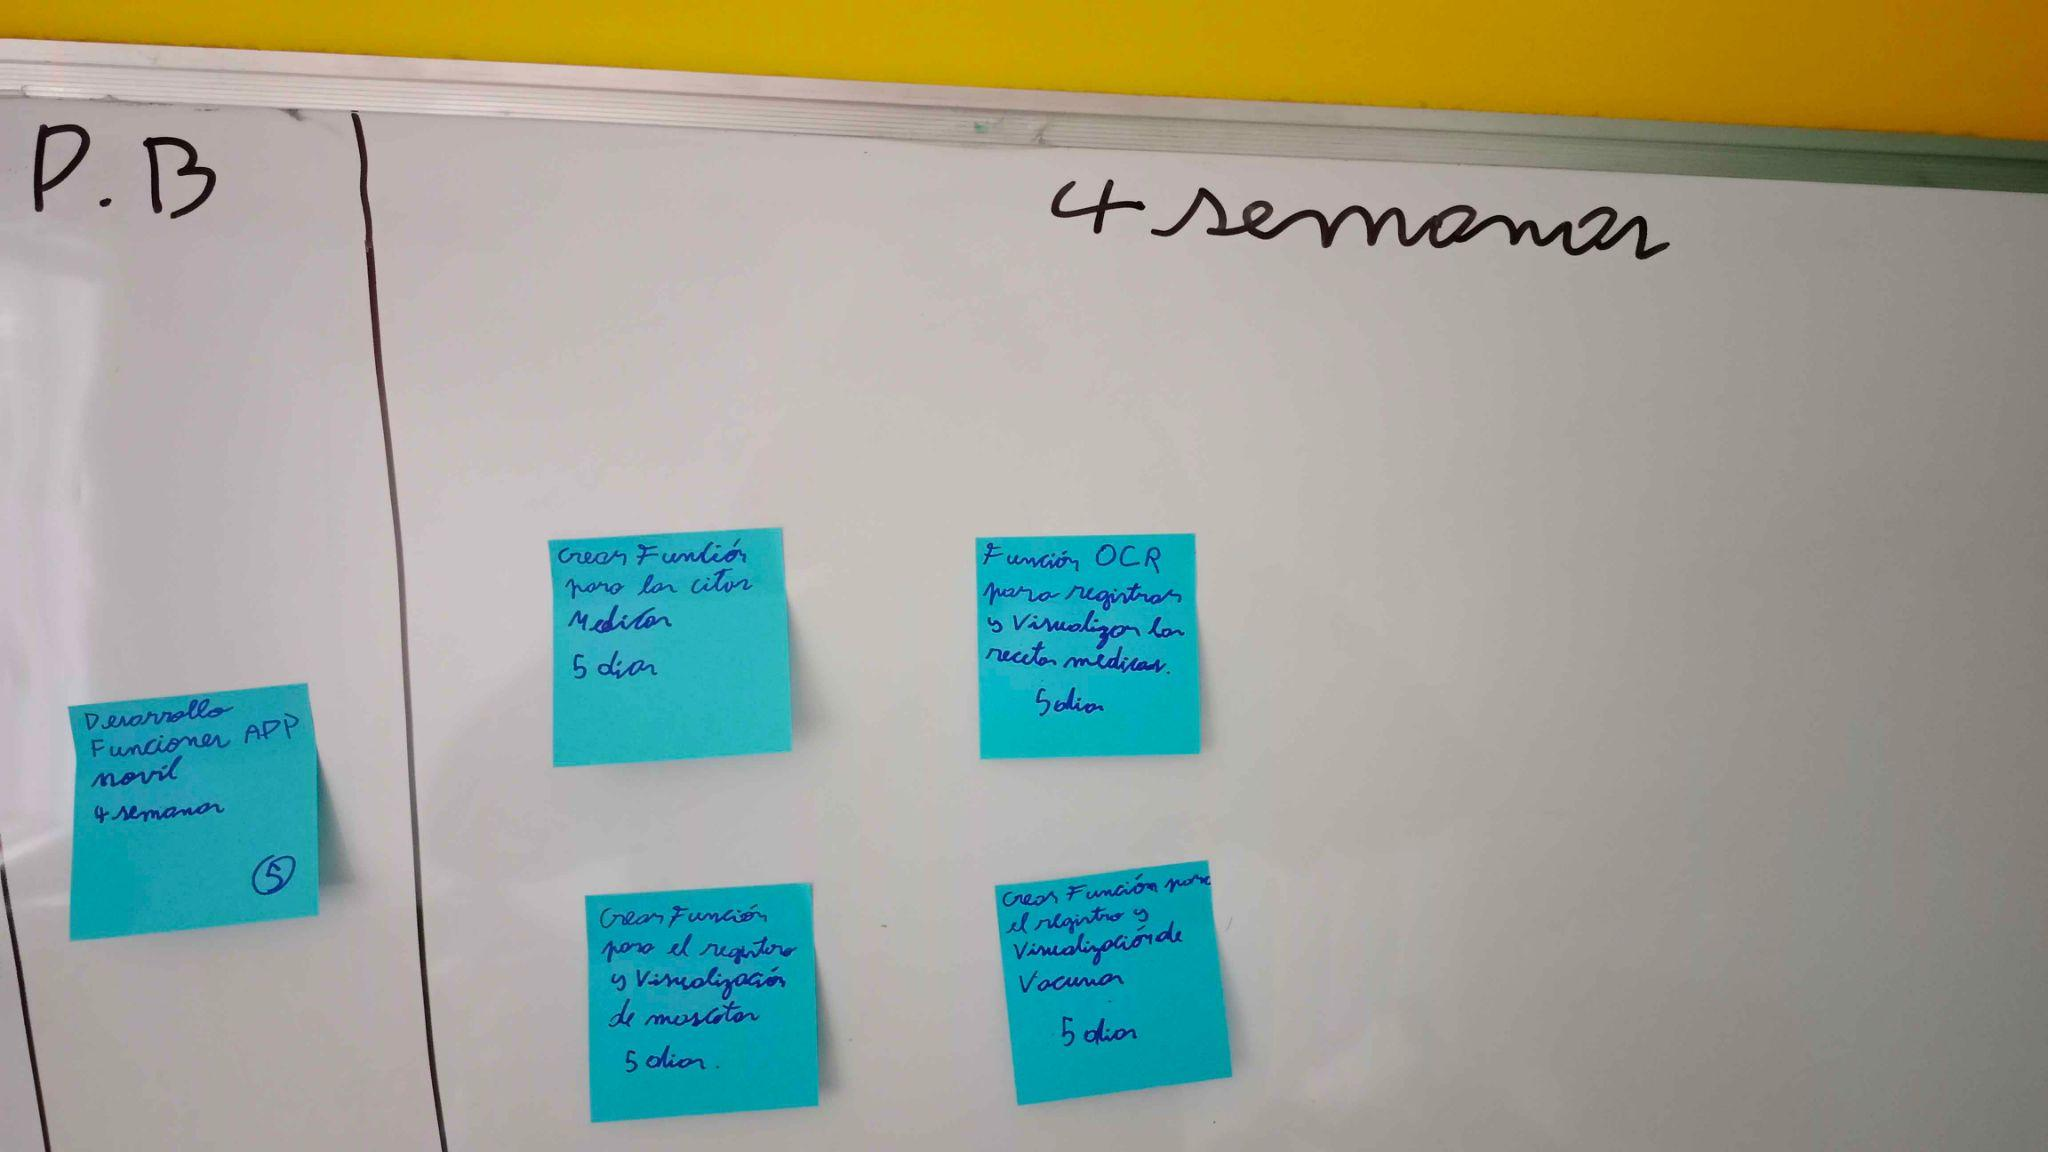 P.B
4 semanas
Desarrollo
Funciones APP
movil
4 semanas
5
Crear Función
para las citas
Medicas
5 dias
Función OCR
para registrar
y Visualizar las
recetas medicas.
5 dias
Crear Función
para el registro
y Visualización
de mascotas
5 dias.
Crear Función para
el registro y
Visualización de
Vacunas
5 dias